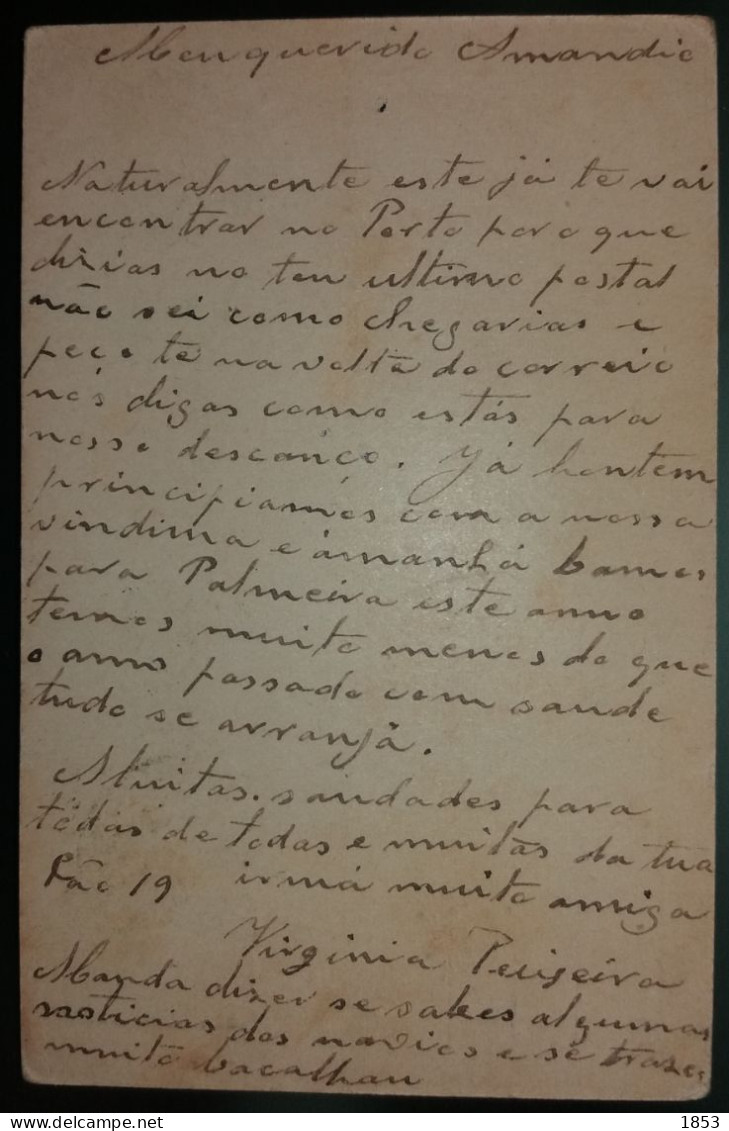 Meu querido Amandio
Naturalmente este já te vai
encontrar no Porto para que
dizias no teu ultimo postal
não sei como chegarias e
peço te na volta do correio
nos digas como estás para
nosso descanço. Já hontem
principiamos com a nossa
vindima e ámanhã bamos
para Palmeira este anno
temos muito menos do que
o anno passado com saude
tudo se arranjã.
Muitas saudades para
todas de todas e muitas da tua
19 irmã muito amiga
Virginia Teixeira
Manda dizer se sabes algumas
noticias dos navios e se trazem
muito bacalhau
delcampe.net
1853